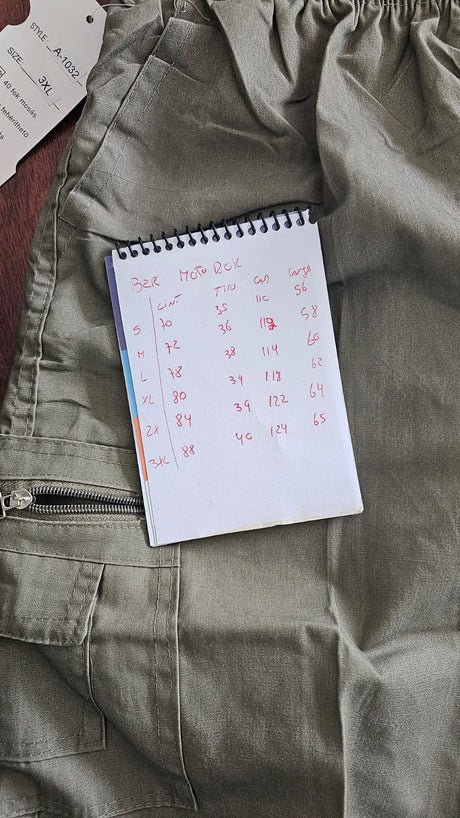 STYLE: A-1032
SIZE: 3XL
40 fok mosás
fehéríthető
BZR MOTO ROIL
CINT TIRO CAD largo
S 70 35 110 56
M 72 36 112 58
L 78 38 114 60
XL 80 39 118 62
2X 84 39 122 64
3XL 88 40 124 65